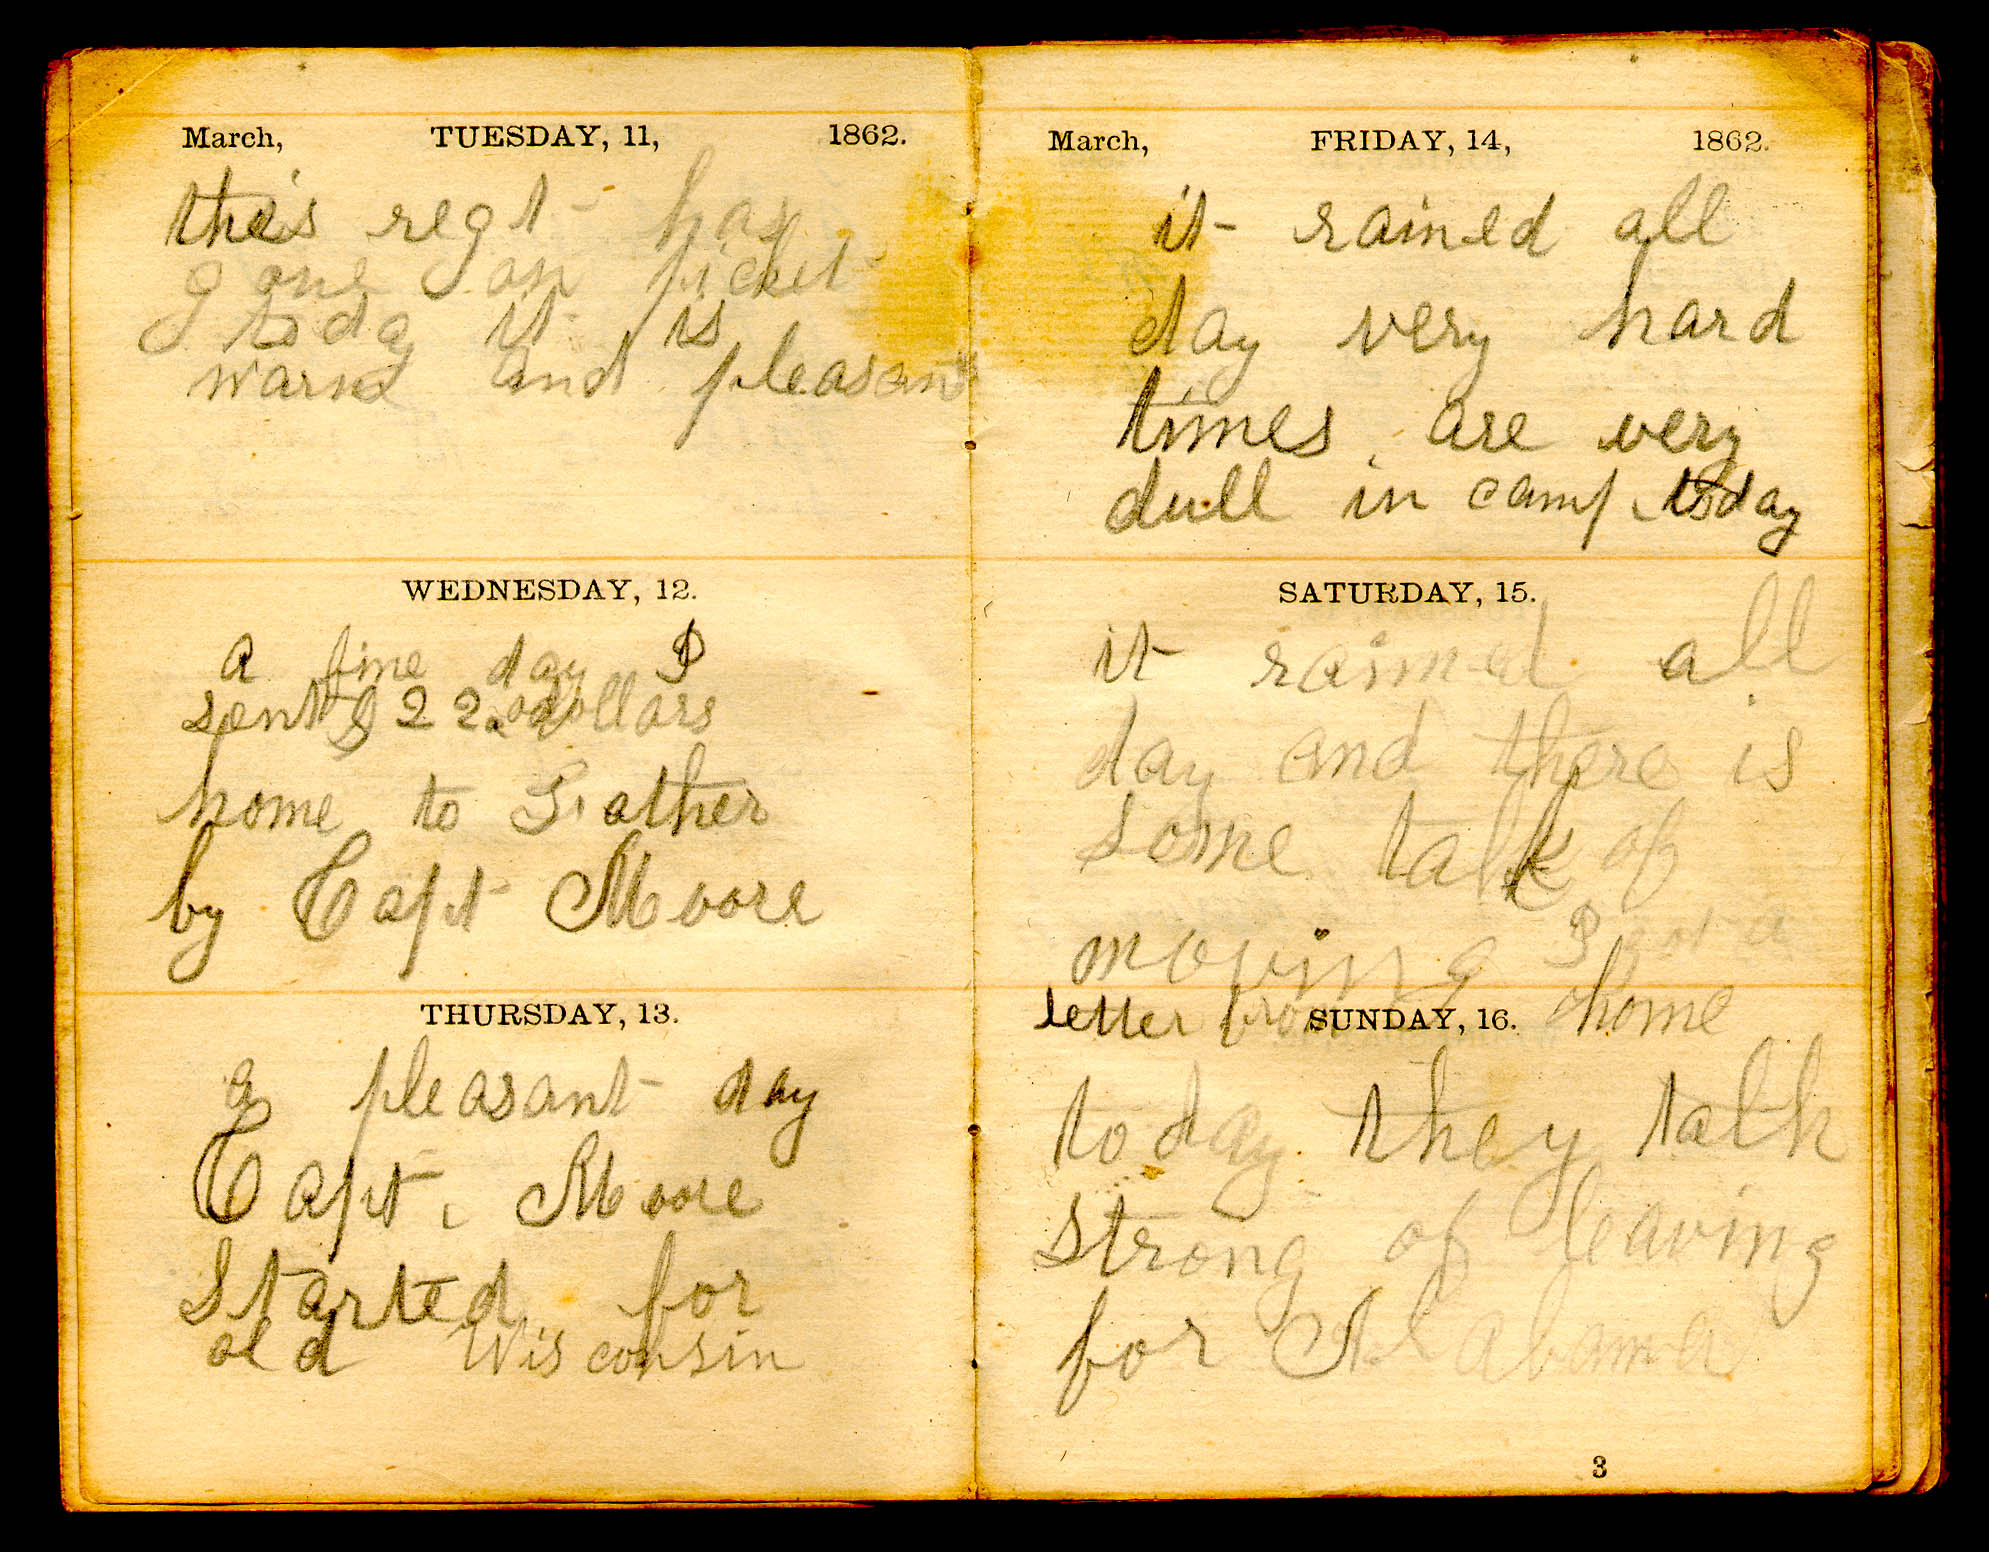 March, TUESDAY, 11, 1862.
this regt has
gone on picket
today it is
warm and pleasant
WEDNESDAY, 12.
a fine day I
sent $22.00 dollars
home to Father
by Capt Moore
THURSDAY, 13.
a pleasant day
Capt. Moore
Started for
old Wisconsin
March, FRIDAY, 14, 1862.
it rained all
day very hard
times are very
dull in camp today
SATURDAY, 15.
it rained all
day and there is
some talk of
moving I got a
letter from home
SUNDAY, 16.
today they talk
strong of leaving
for Alabama
3